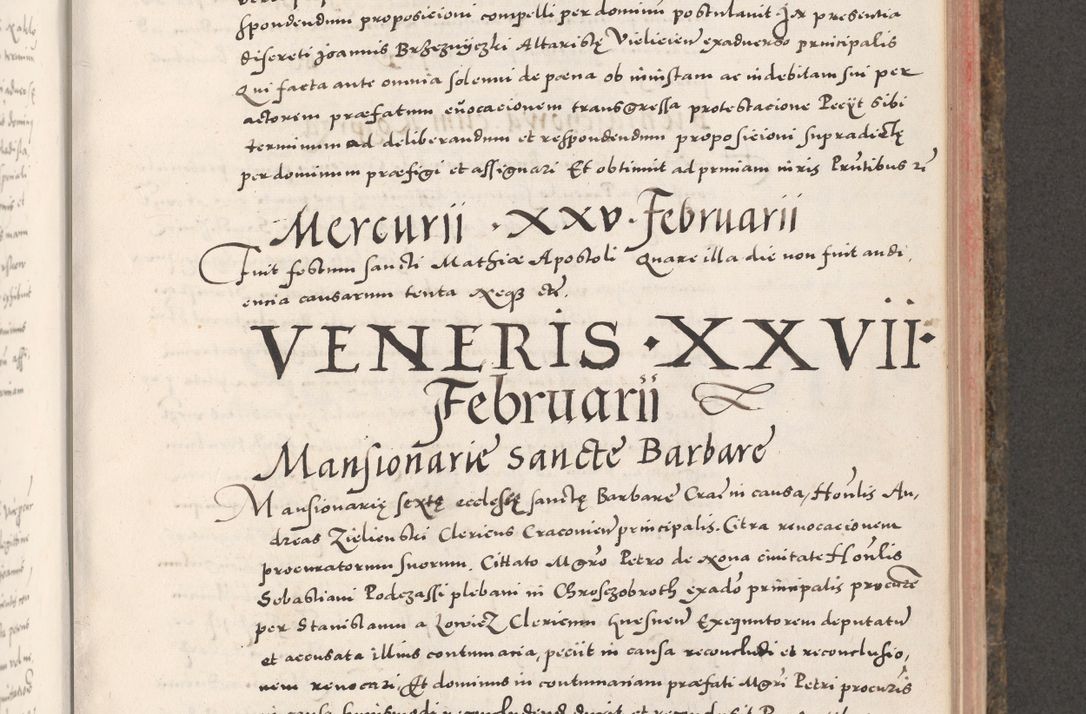 spondendum proposicioni compelli per dominum postulavit. In presentia
discreti Joannis Brzeznyczki Altaristę Vielicien̄ exadverso principalis
Qui facta ante omnia solenni de poena ob iniustam ac indebitam sui per
actorem præfatum evocacionem transgressa protestacione Pecyt sibi
terminum ad deliberandum et respondendum proposicioni supradictę
per dominum præfigi et assignari Et obtinuit ad primam iuris Prntibus
Mercurii · xxv · Februarii
Fuit festum sancti Mathiæ Apostoli Quare illa die non fuit audi,
encia causarum tenta Neqȝ etc.
VENERIS · XXVII ·
Februarii
Mansionarie Sancte Barbare
Mansionarię sextę ecclesię sanctę Barbare Crac̄ in causa, Hon̄lis An,
dreas Zielienski Clericus Cracovien̄ principalis. Citra revocacionem
procuratorum suorum. Cittato Mgr̄o Petro de Xona civitate Hon̄lis
Sebastiani Podczassi plebani in Chrosczobroth exad̄o principalis procur̄e
per Stanislaum a Lowicz Clericum Gnesnen̄ Exequutorem deputatū
et accusata illius contumacia, peciit in causa reconcludi et reconclusio,
nem revocari, Et dominus in contumaciam præfati Mgr̄i Petri procur̄is